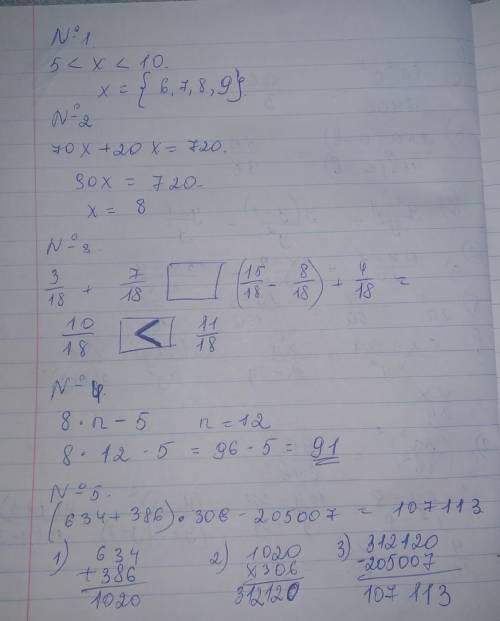 №1
5 < x < 10.
x = {6, 7, 8, 9}.
№2
70x + 20x = 720.
90x = 720.
x = 8
№3
3/18 + 7/18 □ (15/18 - 8/18) + 4/18 =
10/18 < 11/18
№4
8 · n - 5 n = 12
8 · 12 - 5 = 96 - 5 = 91
№5.
(634 + 386) · 306 - 205007 = 107113
1) 634 2) 1020 3) 312120
+386 x306 -205007
1020 312120 107113